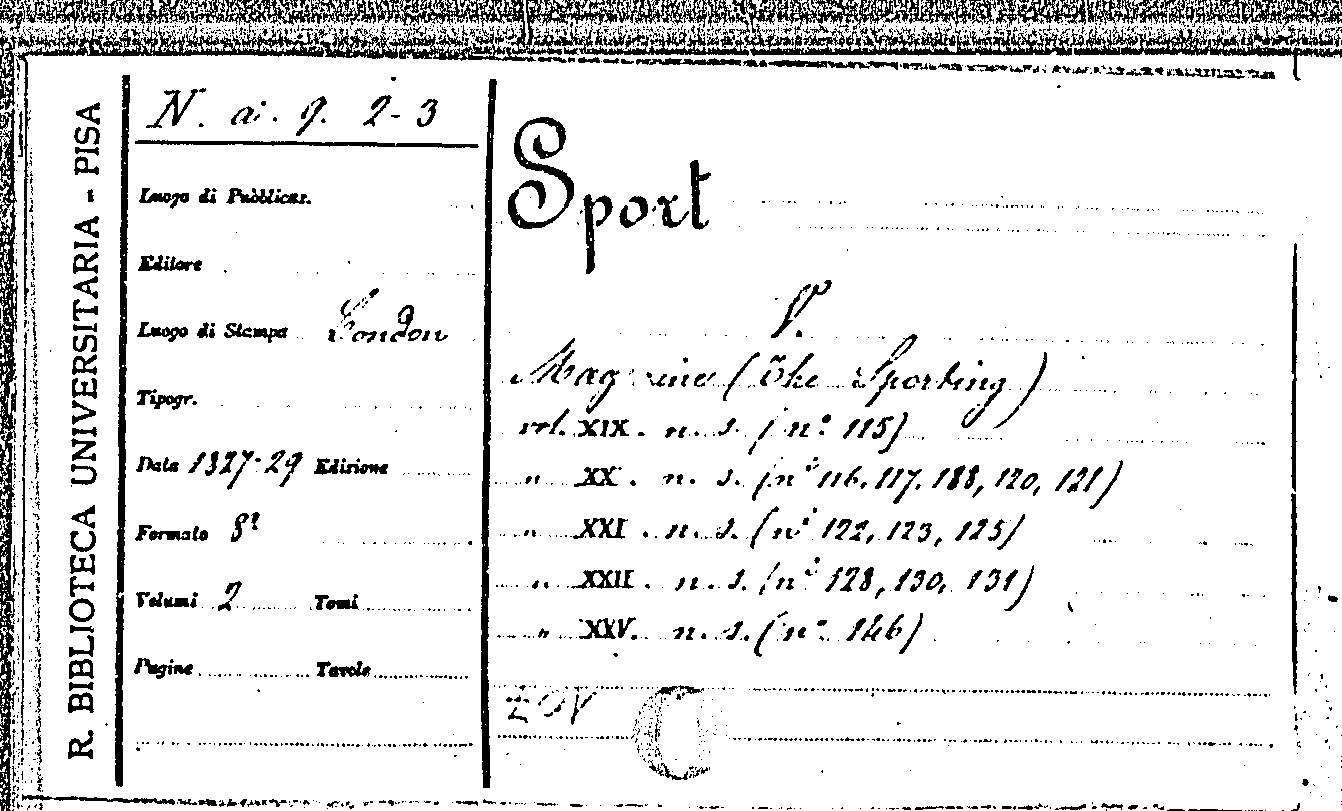 R. BIBLIOTECA UNIVERSITARIA - PISA
N. ai. 9. 2-3
Luogo di Pubblicaz.
Editore
Luogo di Stampa London
Tipogr.
Data 1827-29 Edizione
Formato 8º
Volumi 2 Tomi
Pagine Tavole
Sport
V.
Magazine (The Sporting)
vol. XIX. n. s. (nº 115)
" XX. n. s. (nⁱ 116, 117, 188, 120, 121)
" XXI. n. s. (nⁱ 122, 123, 125)
" XXII. n. s. (nⁱ 128, 130, 131)
" XXV. n. s. (nº 146)